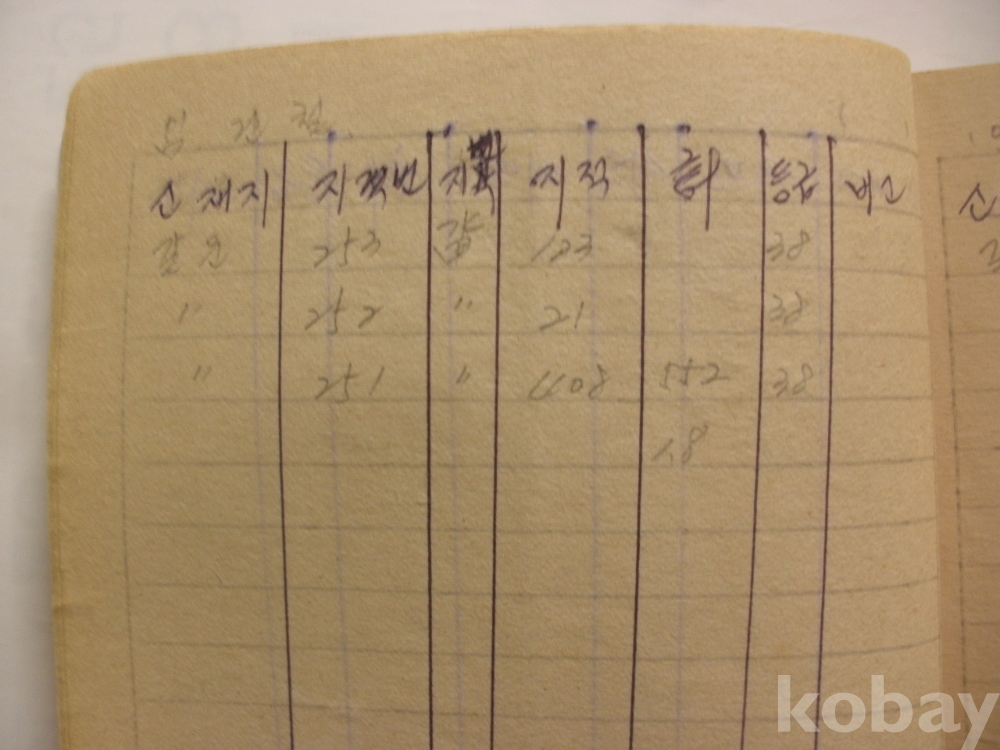 소재지 지적번 지목 지적 계 등급 비고
253 답 123 38
" 252 " 21 38
" 251 " 408 552 38
1.8
kobay